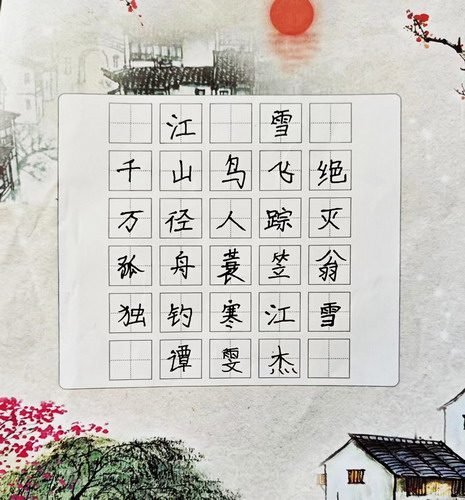 江雪
千山鸟飞绝
万径人踪灭
孤舟蓑笠翁
独钓寒江雪
谭雯杰